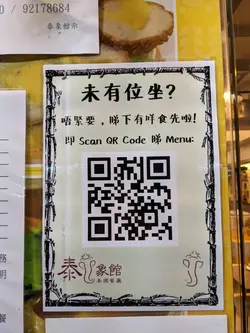 0 / 92178684
泰象館示
未有位坐?
唔緊要，睇下有咩食先啦!
即 Scan QR Code 睇 Menu:
泰象館
泰國餐廳
務
明
餐